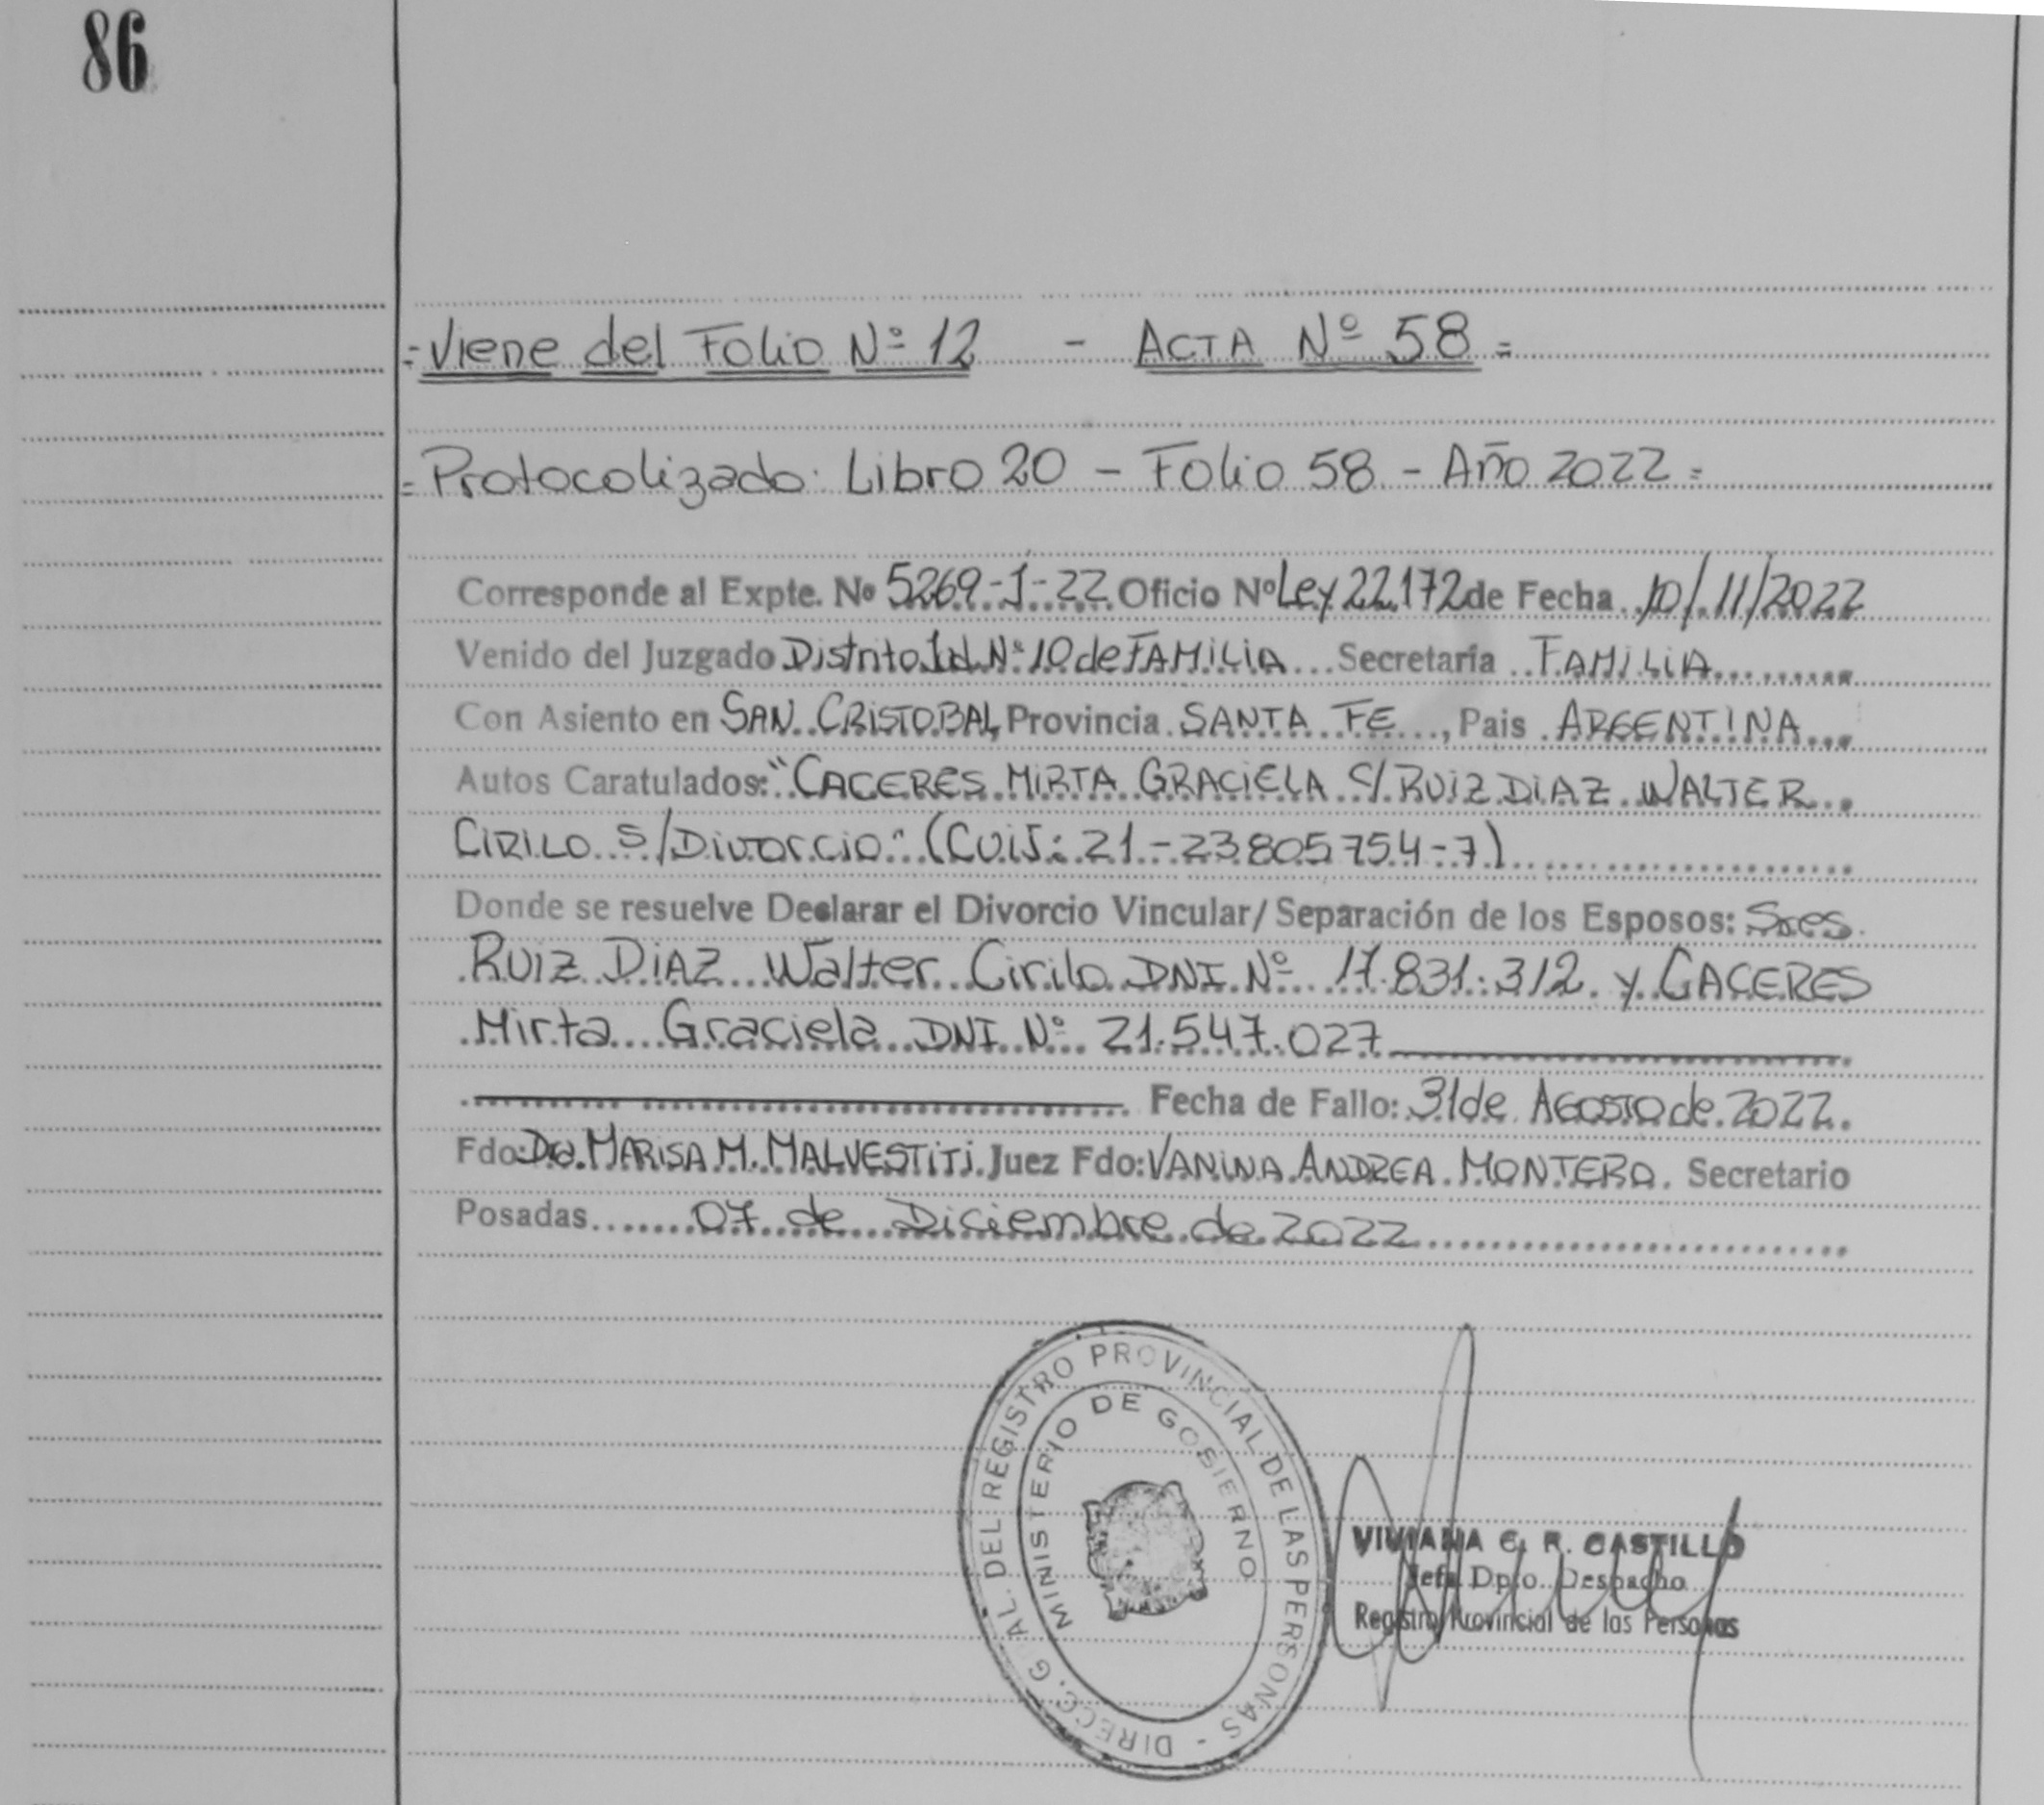 86
=Viene del Folio Nº 12 - ACTA Nº 58=
=Protocolizado: Libro 20 - Folio 58 - Año 2022=
Corresponde al Expte. Nº 5269-J-22 Oficio Nº Ley 22.172 de Fecha 10/11/2022
Venido del Juzgado Distrito Jd. Nº 10 de FAMILIA Secretaría FAMILIA
Con Asiento en SAN CRISTOBAL, Provincia SANTA FE, Pais ARGENTINA
Autos Caratulados: "CACERES MIRTA GRACIELA C/ RUIZ DIAZ WALTER
CIRILO S/Divorcio" (CUIJ: 21-23805754-7)
Donde se resuelve Declarar el Divorcio Vincular/Separación de los Esposos: Sres
RUIZ DIAZ Walter Cirilo DNI Nº 17.831.312 y CACERES
Mirta Graciela DNI Nº 21.547.027
Fecha de Fallo: 31 de AGOSTO de 2022.
Fdo: Dra. MARISA M. MALVESTITI Juez Fdo: VANINA ANDREA MONTERO. Secretario
Posadas 07 de Diciembre de 2022
DIRECC. GRAL. DEL REGISTRO PROVINCIAL DE LAS PERSONAS -
MINISTERIO DE GOBIERNO
VIVIANA C. R. CASTILLO
Jefa Dpto. Despacho
Registro Provincial de las Personas